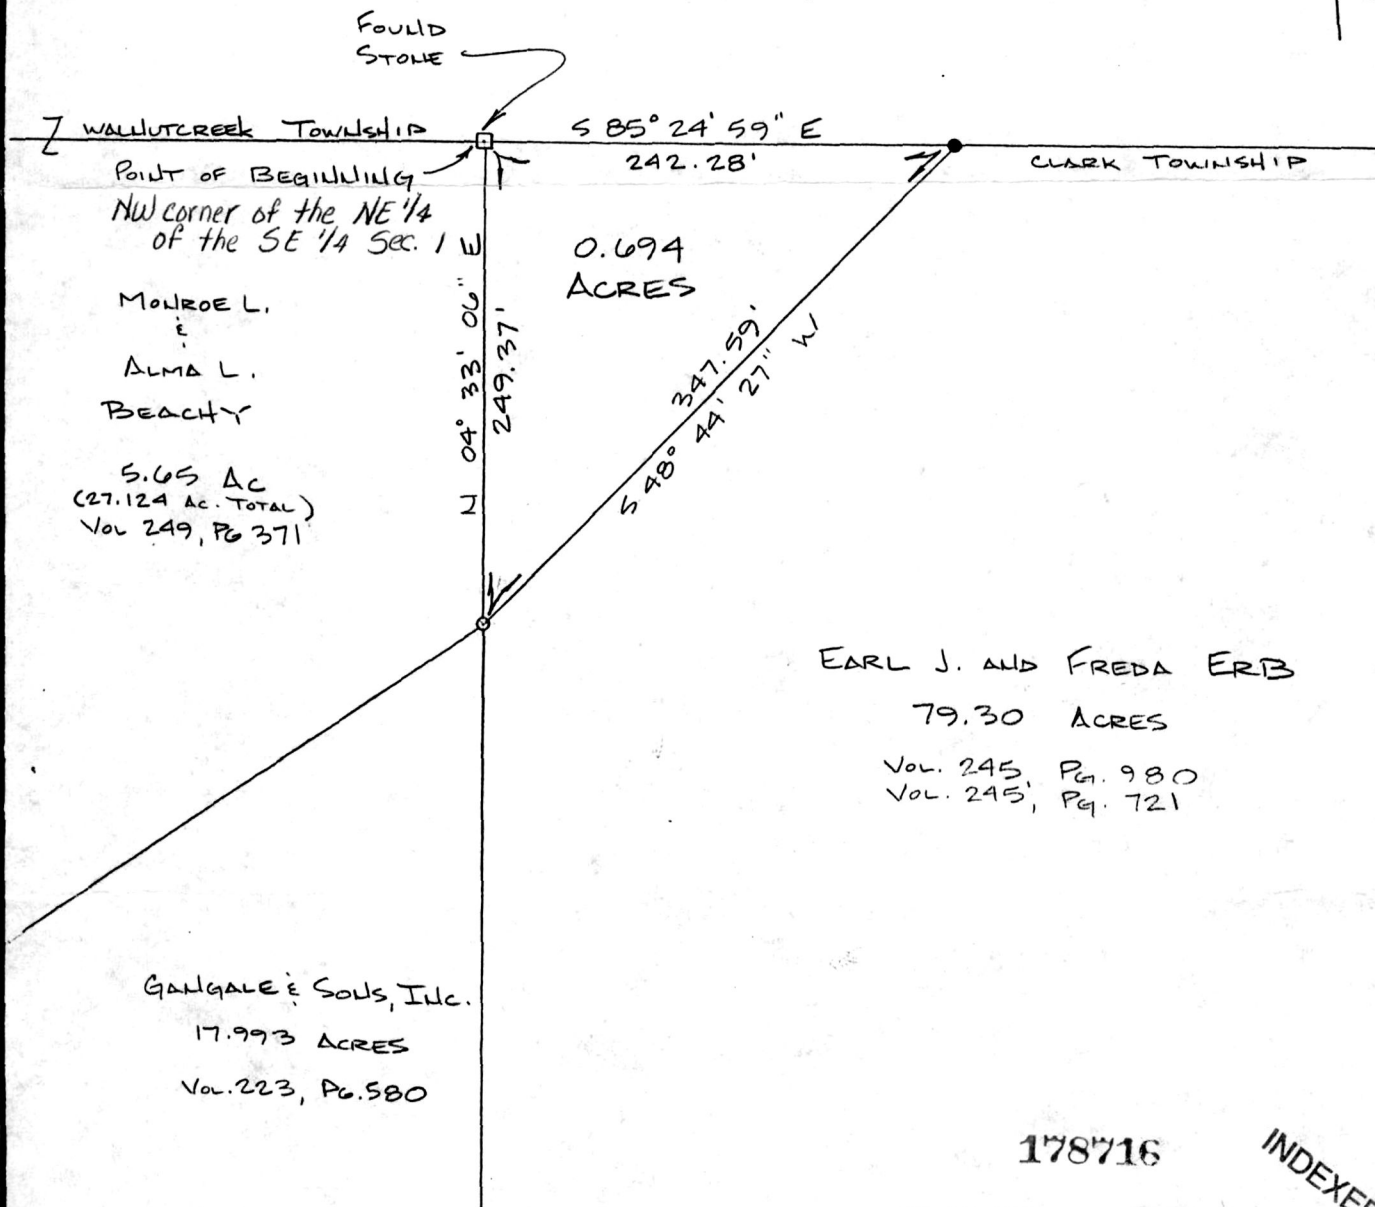 FOUND
STONE
WALNUTCREEK TOWNSHIP
S 85° 24' 59" E
242.28'
CLARK TOWNSHIP
POINT OF BEGINNING
NW corner of the NE 1/4
of the SE 1/4 Sec. 1
N 04° 33' 06" E
249.37'
0.694
ACRES
347.59'
S 48° 44' 27" W
MONROE L.
&
ALMA L.
BEACHY
5.65 AC
(27.124 AC. TOTAL)
VOL 249, PG 371
EARL J. AND FREDA ERB
79.30 ACRES
VOL. 245, PG. 980
VOL. 245, PG. 721
GANGALE & SONS, INC.
17.993 ACRES
VOL. 223, PG. 580
178716
INDEXED